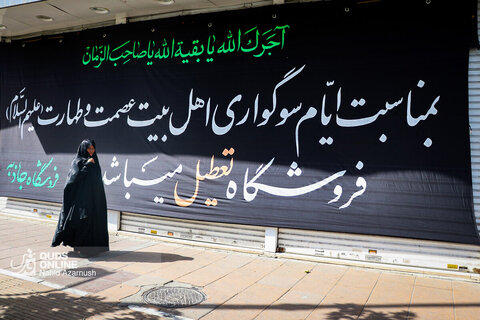 آجرك الله يا بقية الله يا صاحب الزمان
بمناسبت ايّام سوگواری اهل بيت عصمت و طهارت (عليهم السّلام)
فروشگاه تعطيل ميباشد
فروشگاه جاذبه
QUDS
ONLINE
Nahid Azarnush